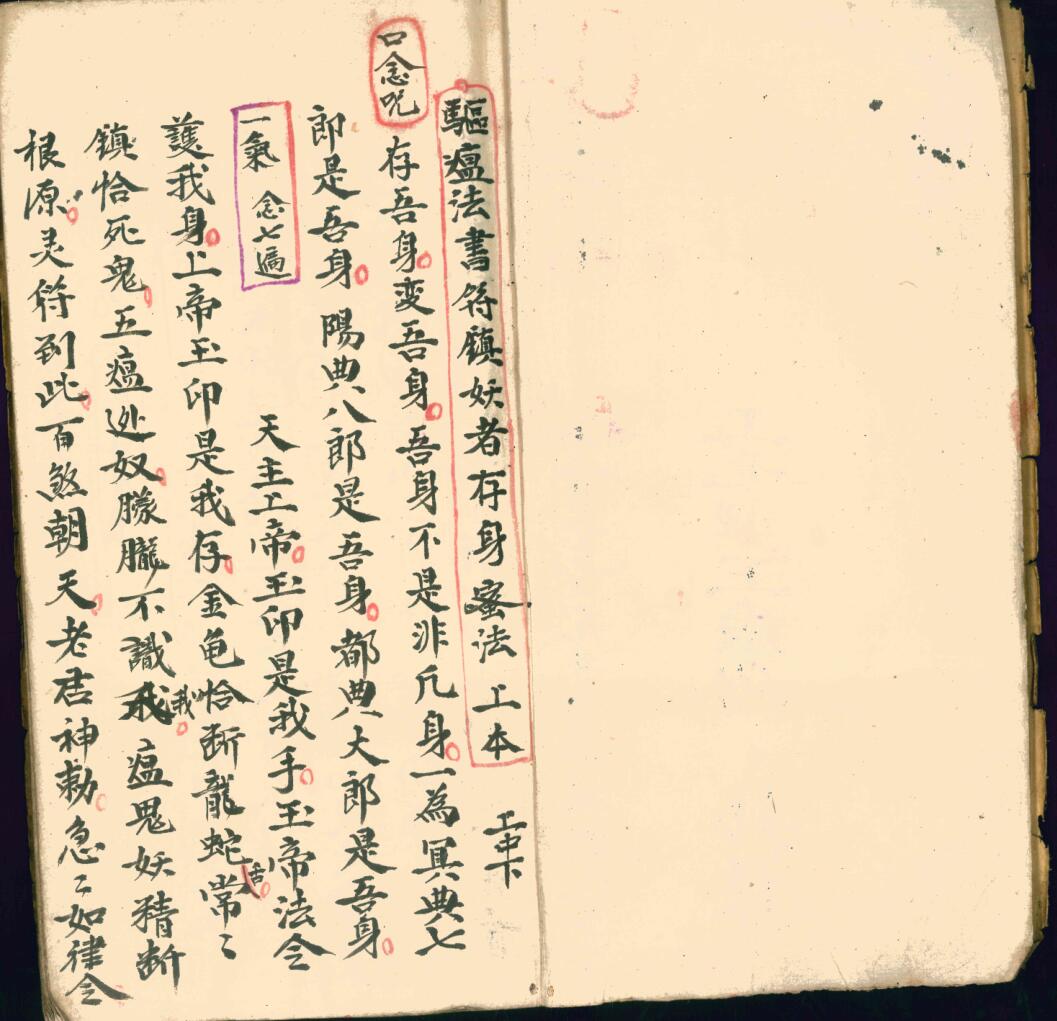 驅瘟法書符鎮妖者存身蜜法 上本
上中下
口念咒
存吾身变吾身吾身不是非凡身一為冥典七
郎是吾身 陽典八郎是吾身都典大郎是吾身
一氣 念七遍
天主上帝玉印是我手玉帝法令
護我身上帝玉印是我存金龟恰断龍蛇舌常〻
鎮恰死鬼五瘟奴朦朧不識我瘟鬼妖精断
根源灵符到此百煞朝天老君神勅急〻如律令